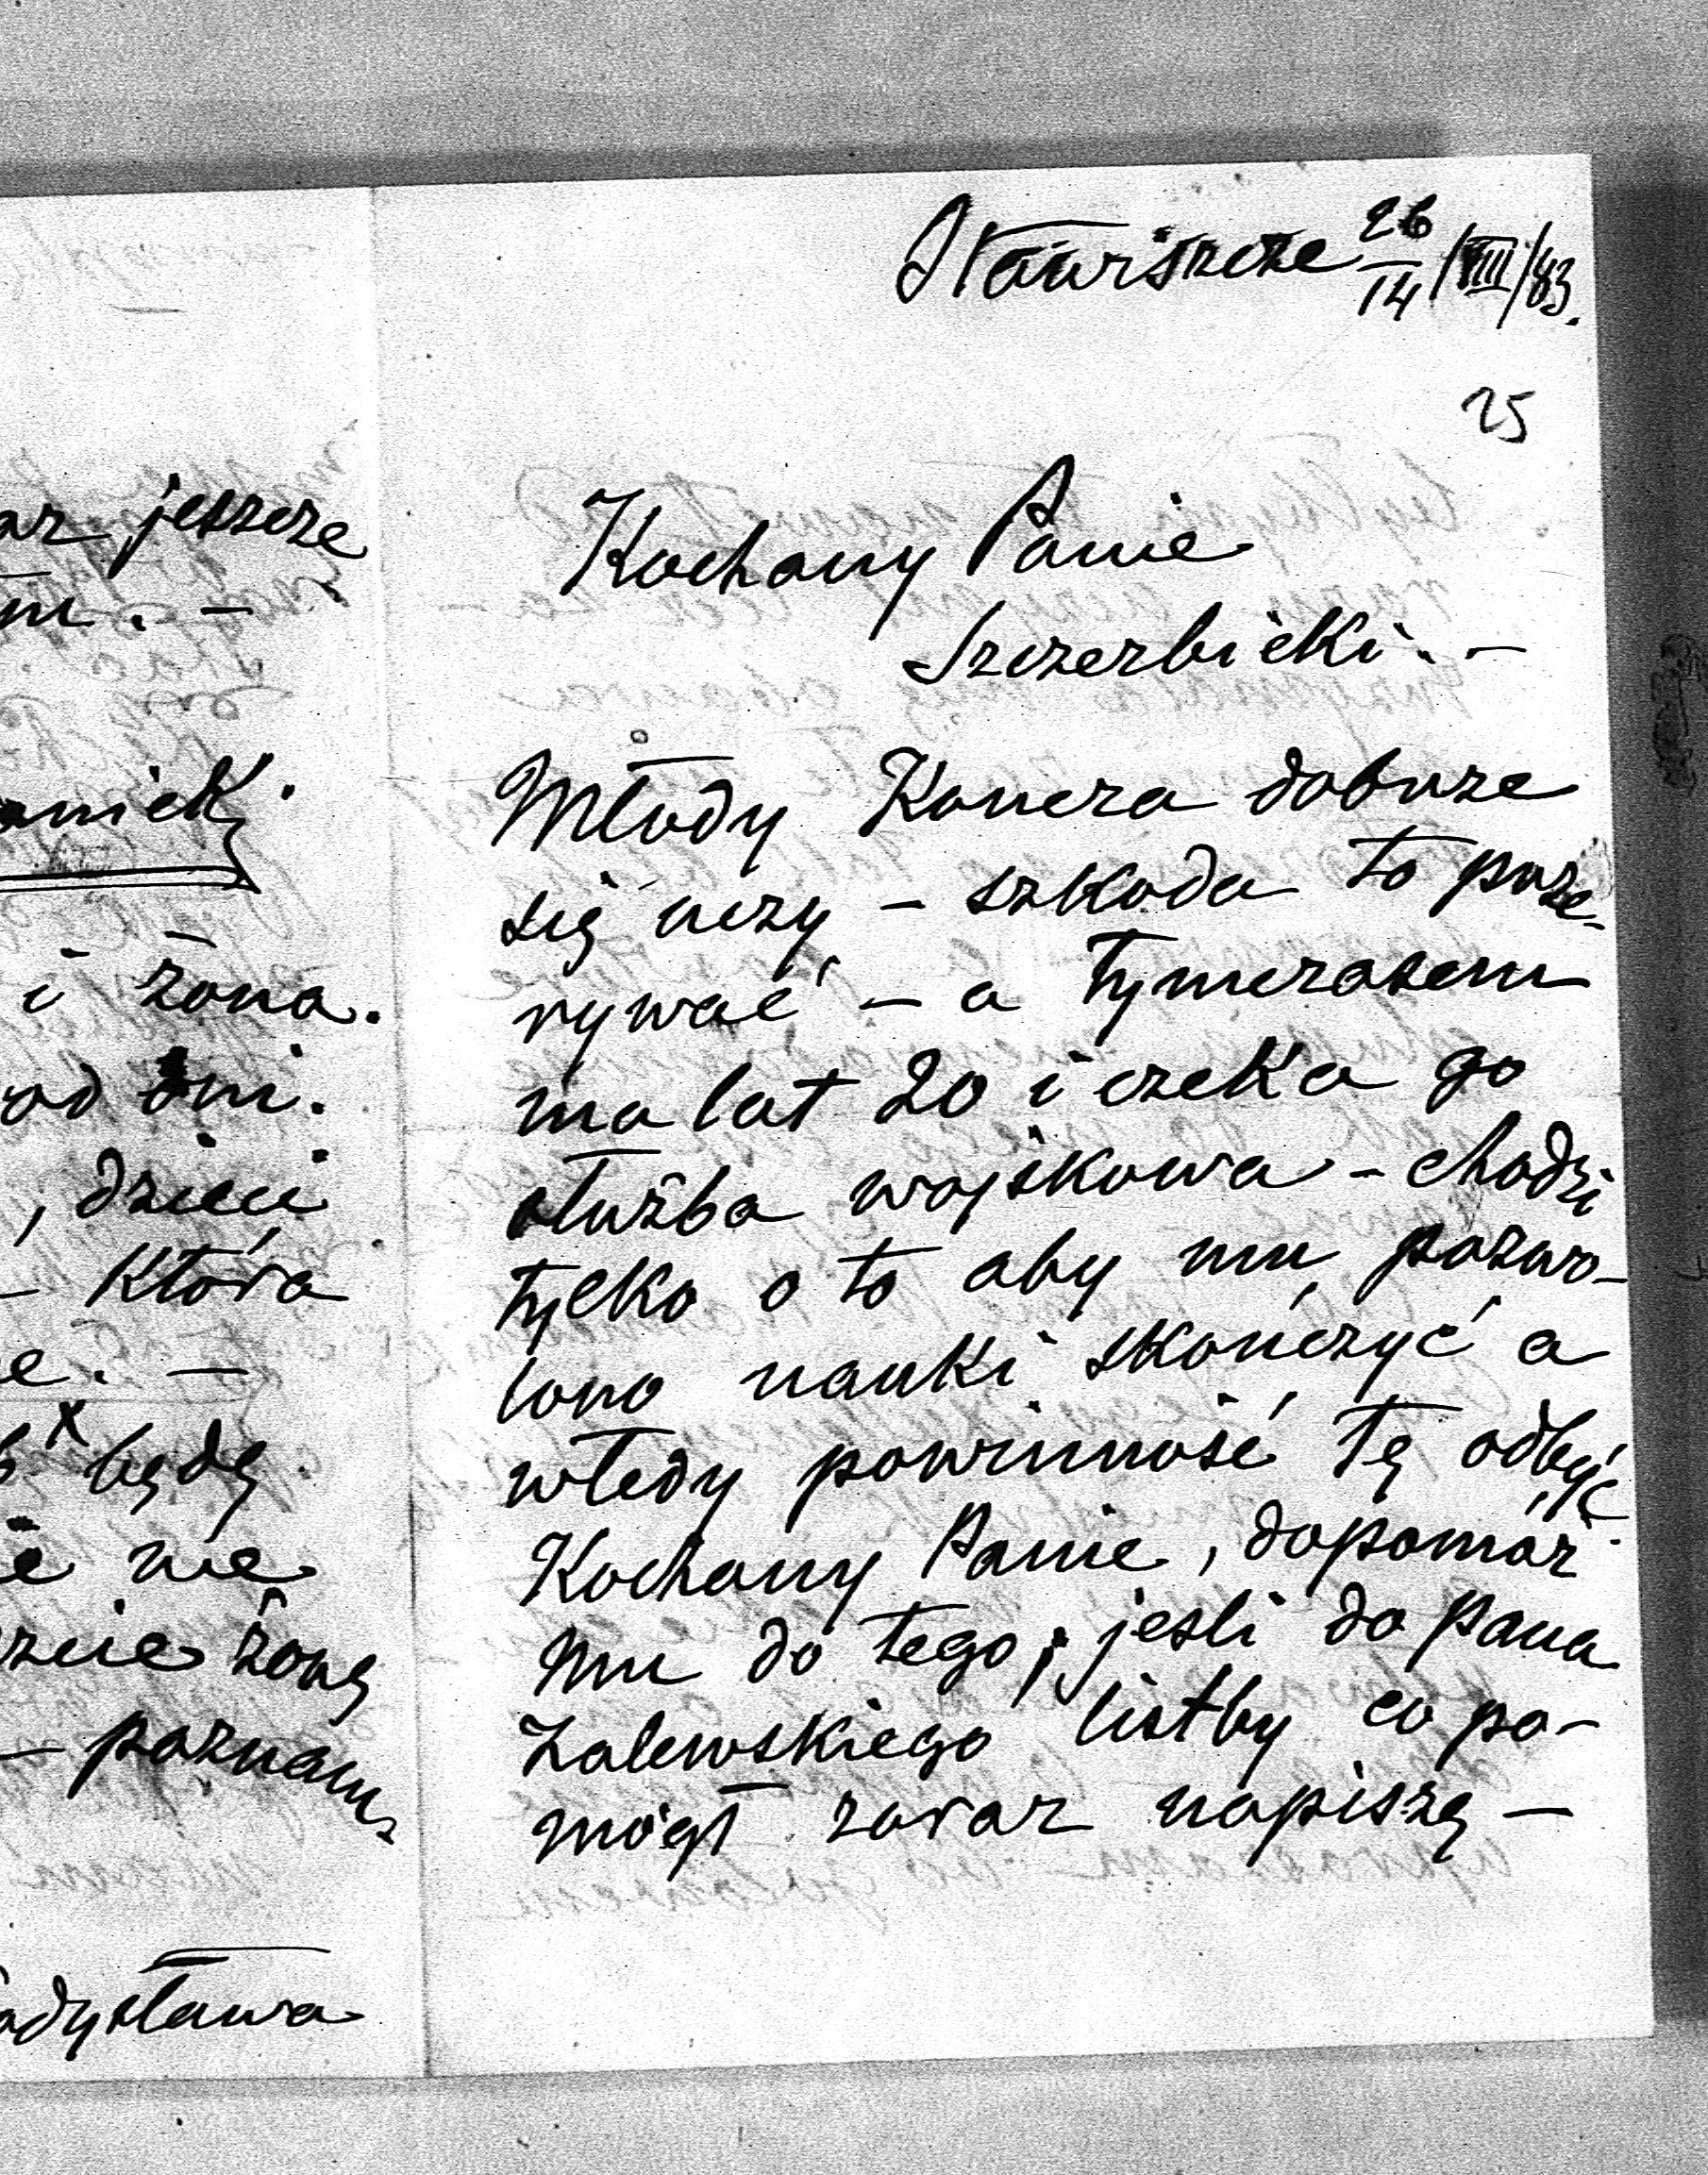 Stawiszcze 26/14/VIII/83.
25
Kochany Panie
Szczerbicki. -
Młody Koncza dobrze
się uczy - szkoda to prze-
rywać - a tymczasem
ma lat 20 i czeka go
służba wojskowa - chodzi
tylko o to aby mu pozwo-
lono nauki skończyć a
wtedy powinność tę odbyć
Kochany Panie, dopomóż
mu do tego; jeśli do pana
Zalewskiego listby co po-
mógł zaraz napiszę -
ar jeszcze
m. -
anicki
i żona.
od dni.
, dzieci
- która
e. -
x będę
że nie
żonę
- poznam
adysława